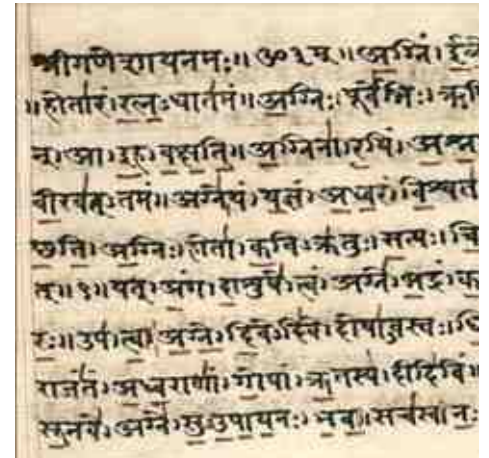 श्रीगणेशायनमः॥ॐ३म्॥अग्निं। ईळे
॥होतारं। रत्नऽधातमं॥अग्निः। पूर्वेभिः। ऋषि
न्। आ। इह। वक्षति॥अग्निना। रयिं। अश्न
वीरवत्ऽतमं॥अग्ने। यं। यज्ञं। अध्वरं। विश्वत
छति॥अग्निः। होता। कविऽक्रतुः। सत्यः। चि
त्॥१॥यत्। अंग। दाशुषे। त्वं। अग्ने। भद्रं। क
रः॥उप। त्वा। अग्ने। दिवेऽदिवे। दोषाऽवस्तः। धि
राजंतं। अध्वराणां। गोपां। ऋतस्य। दीदिविं॥
सूनवे। अग्ने। सुऽउपायनः। भव॥सचस्व। नः